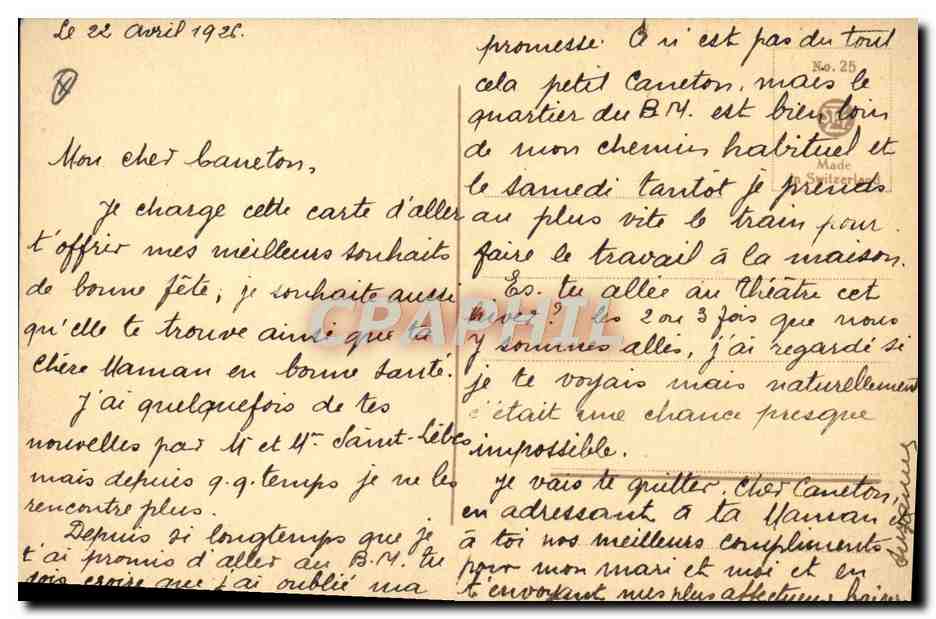 Le 22 avril 1926.
Mon cher Caneton,
Je charge cette carte d'aller
t'offrir mes meilleurs souhaits
de bonne fête, je souhaite aussi
qu'elle te trouve ainsi que ta
chère Maman en bonne santé.
J'ai quelquefois de tes
nouvelles par Mr et Mme Saint-Lèbes
mais depuis q.q. temps je ne les
rencontre plus.
Depuis si longtemps que je
t'ai promis d'aller au B.M. tu
dois croire que j'ai oublié ma
promesse. Ce n'est pas du tout
cela petit Caneton, mais le
quartier du B.M. est bien loin
de mon chemin habituel et
le samedi tantôt je prends
au plus vite le train pour
faire le travail à la maison.
Es-tu allée au Théâtre cet
hiver? Les 2 ou 3 fois que nous
y sommes allés, j'ai regardé si
je te voyais mais naturellement
c'était une chance presque
impossible.
Je vais te quitter, cher Caneton,
en adressant à ta Maman et
à toi nos meilleurs compliments
pour mon mari et moi et en
t'envoyant mes plus affectueux baisers
Suzanne
No. 25
Made
in Switzerland
CPAPHIL